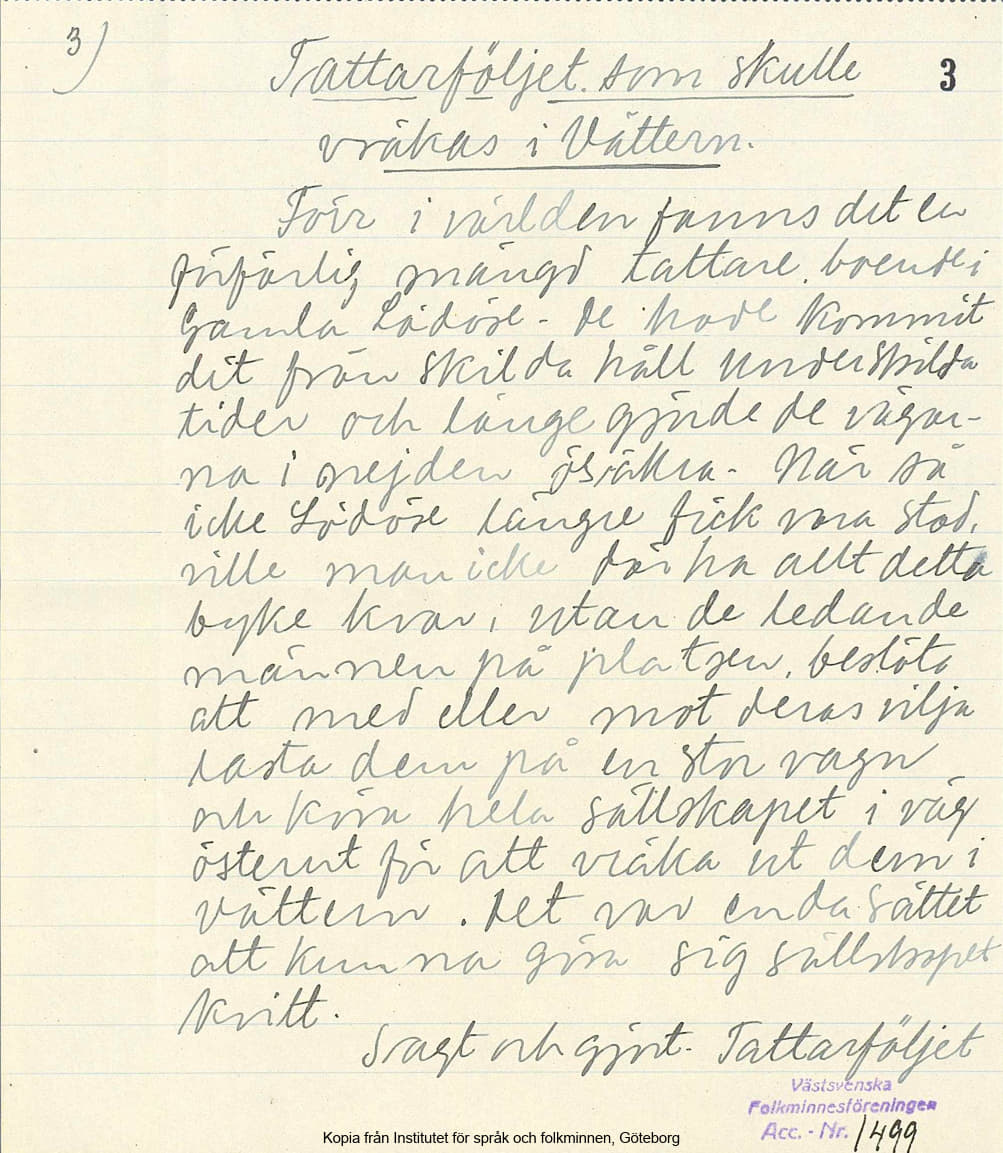 3)
Tattarföljet som skulle
3
vräkas i Vättern.
Förr i världen fanns det en
förfärlig mängd tattare boende i
Gamla Lödöse - De hade kommit
dit från skilda håll under skilda
tider och länge gjorde de vägar-
na i nejden osäkra. När så
icke Lödöse längre fick vara stad,
ville man icke där ha allt detta
byke kvar, utan de ledande
männen på platsen, beslöto
att med eller mot deras vilja
lasta dem på en stor vagn
och köra hela sällskapet i väg
österut för att vräka ut dem i
Vättern. Det var enda sättet
att kunna göra sig sällskapet
kvitt.
Sagt och gjort. Tattarföljet
Västsvenska
Folkminnesföreningen
Acc. - Nr. 1499
Kopia från Institutet för språk och folkminnen, Göteborg